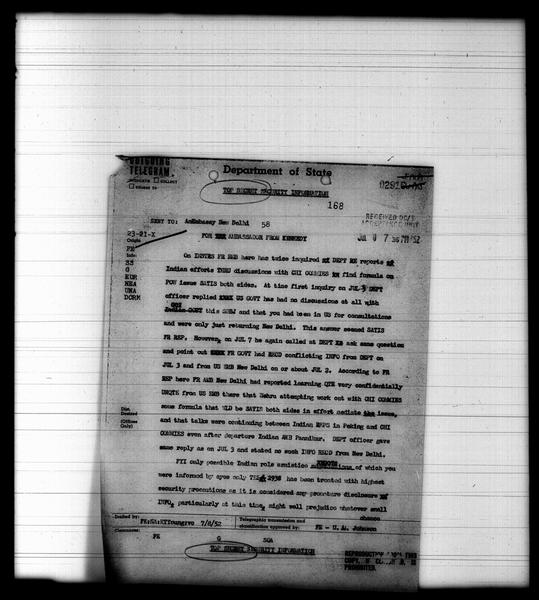 OUTGOING
TELEGRAM
INDICATE: COLLECT
CHARGE TO
Department of State
TOP SECRET SECURITY INFORMATION
168
SENT TO: AmEmbassy New Delhi 58
RECEIVED DC/R
FOR AMBASSADOR FROM KENNEDY
23-21-X
Origin
FE
Info:
SS
G
EUR
NEA
UNA
DCRM
On INSTRS FR EMB here has twice inquired DEPT reports
Indian efforts THRU discussions with CHI COMMIES find formula on
POW issue SATIS both sides. At time first inquiry on JUL 3 DEPT
officer replied US GOVT has had no discussions at all with
GOI
this SUBJ and that you had been in US for consultations
and were only just returning New Delhi. This answer seemed SATIS
FR REP. However, on JUL 7 he again called at DEPT ask same question
and point out FR GOVT had RECD conflicting INFO from DEPT on
JUL 3 and from US EMB New Delhi on or about JUL 2. According to FR
REP here FR AMB New Delhi had reported learning QTE very confidentially
UNQTE from US EMB there that Nehru attempting work out with CHI COMMIES
some formula that WLD be SATIS both sides in effort mediate issue,
and that talks were continuing between Indian in Peking and CHI
COMMIES even after departure Indian AMB Pannikar. DEPT officer gave
same reply as on JUL 3 and stated no such INFO RECD from New Delhi.
FYI only possible Indian role armistice of which you
were informed by eyes only has been treated with highest
security precautions as it is considered any premature disclosure
INFO, particularly at this time, might well prejudice whatever small
chance
Dist.
Desired
(Offices
Only)
Drafted by:
7/8/52
Telegraphic transmission and
classification approved by:
FE - U. A. Johnson
Clearances:
FE G SOA
TOP SECRET SECURITY INFORMATION
REPRODUCTION FROM THIS
COPY, IS
PROHIBITED.